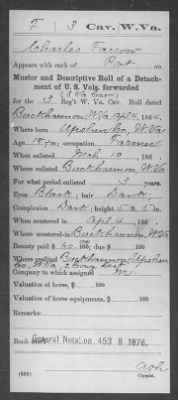 F 3 Cav. W.Va.
Charles Farrow
Appears with rank of Pvt on
Muster and Descriptive Roll of a Detachment
of U. S. Vols. forwarded
for the 3 Reg't W. Va. Cav. Roll dated
Buckhannon, W.Va. Apl 4, 1864.
Where born Upshur Co, W.Va
Age 18 y'rs; occupation Farmer
When enlisted Mch 10, 186
Where enlisted Buckhannon, W.Va
For what period enlisted 3 years.
Eyes Black; hair Dark;
Complexion Dark; height 5 ft. 5 in.
When mustered in Apl 4, 186
Where mustered in Buckhannon, W.Va
Bounty paid $ 60 100; due $ 100
Where credited Buckhannon, Upshur
Co, W.Va, 2 Cong Dist
Company to which assigned M
Valuation of horse, $ 100
Valuation of horse equipments, $ 100
Remarks:
Book mark: General Notation 453 B 1876.
Copyist.